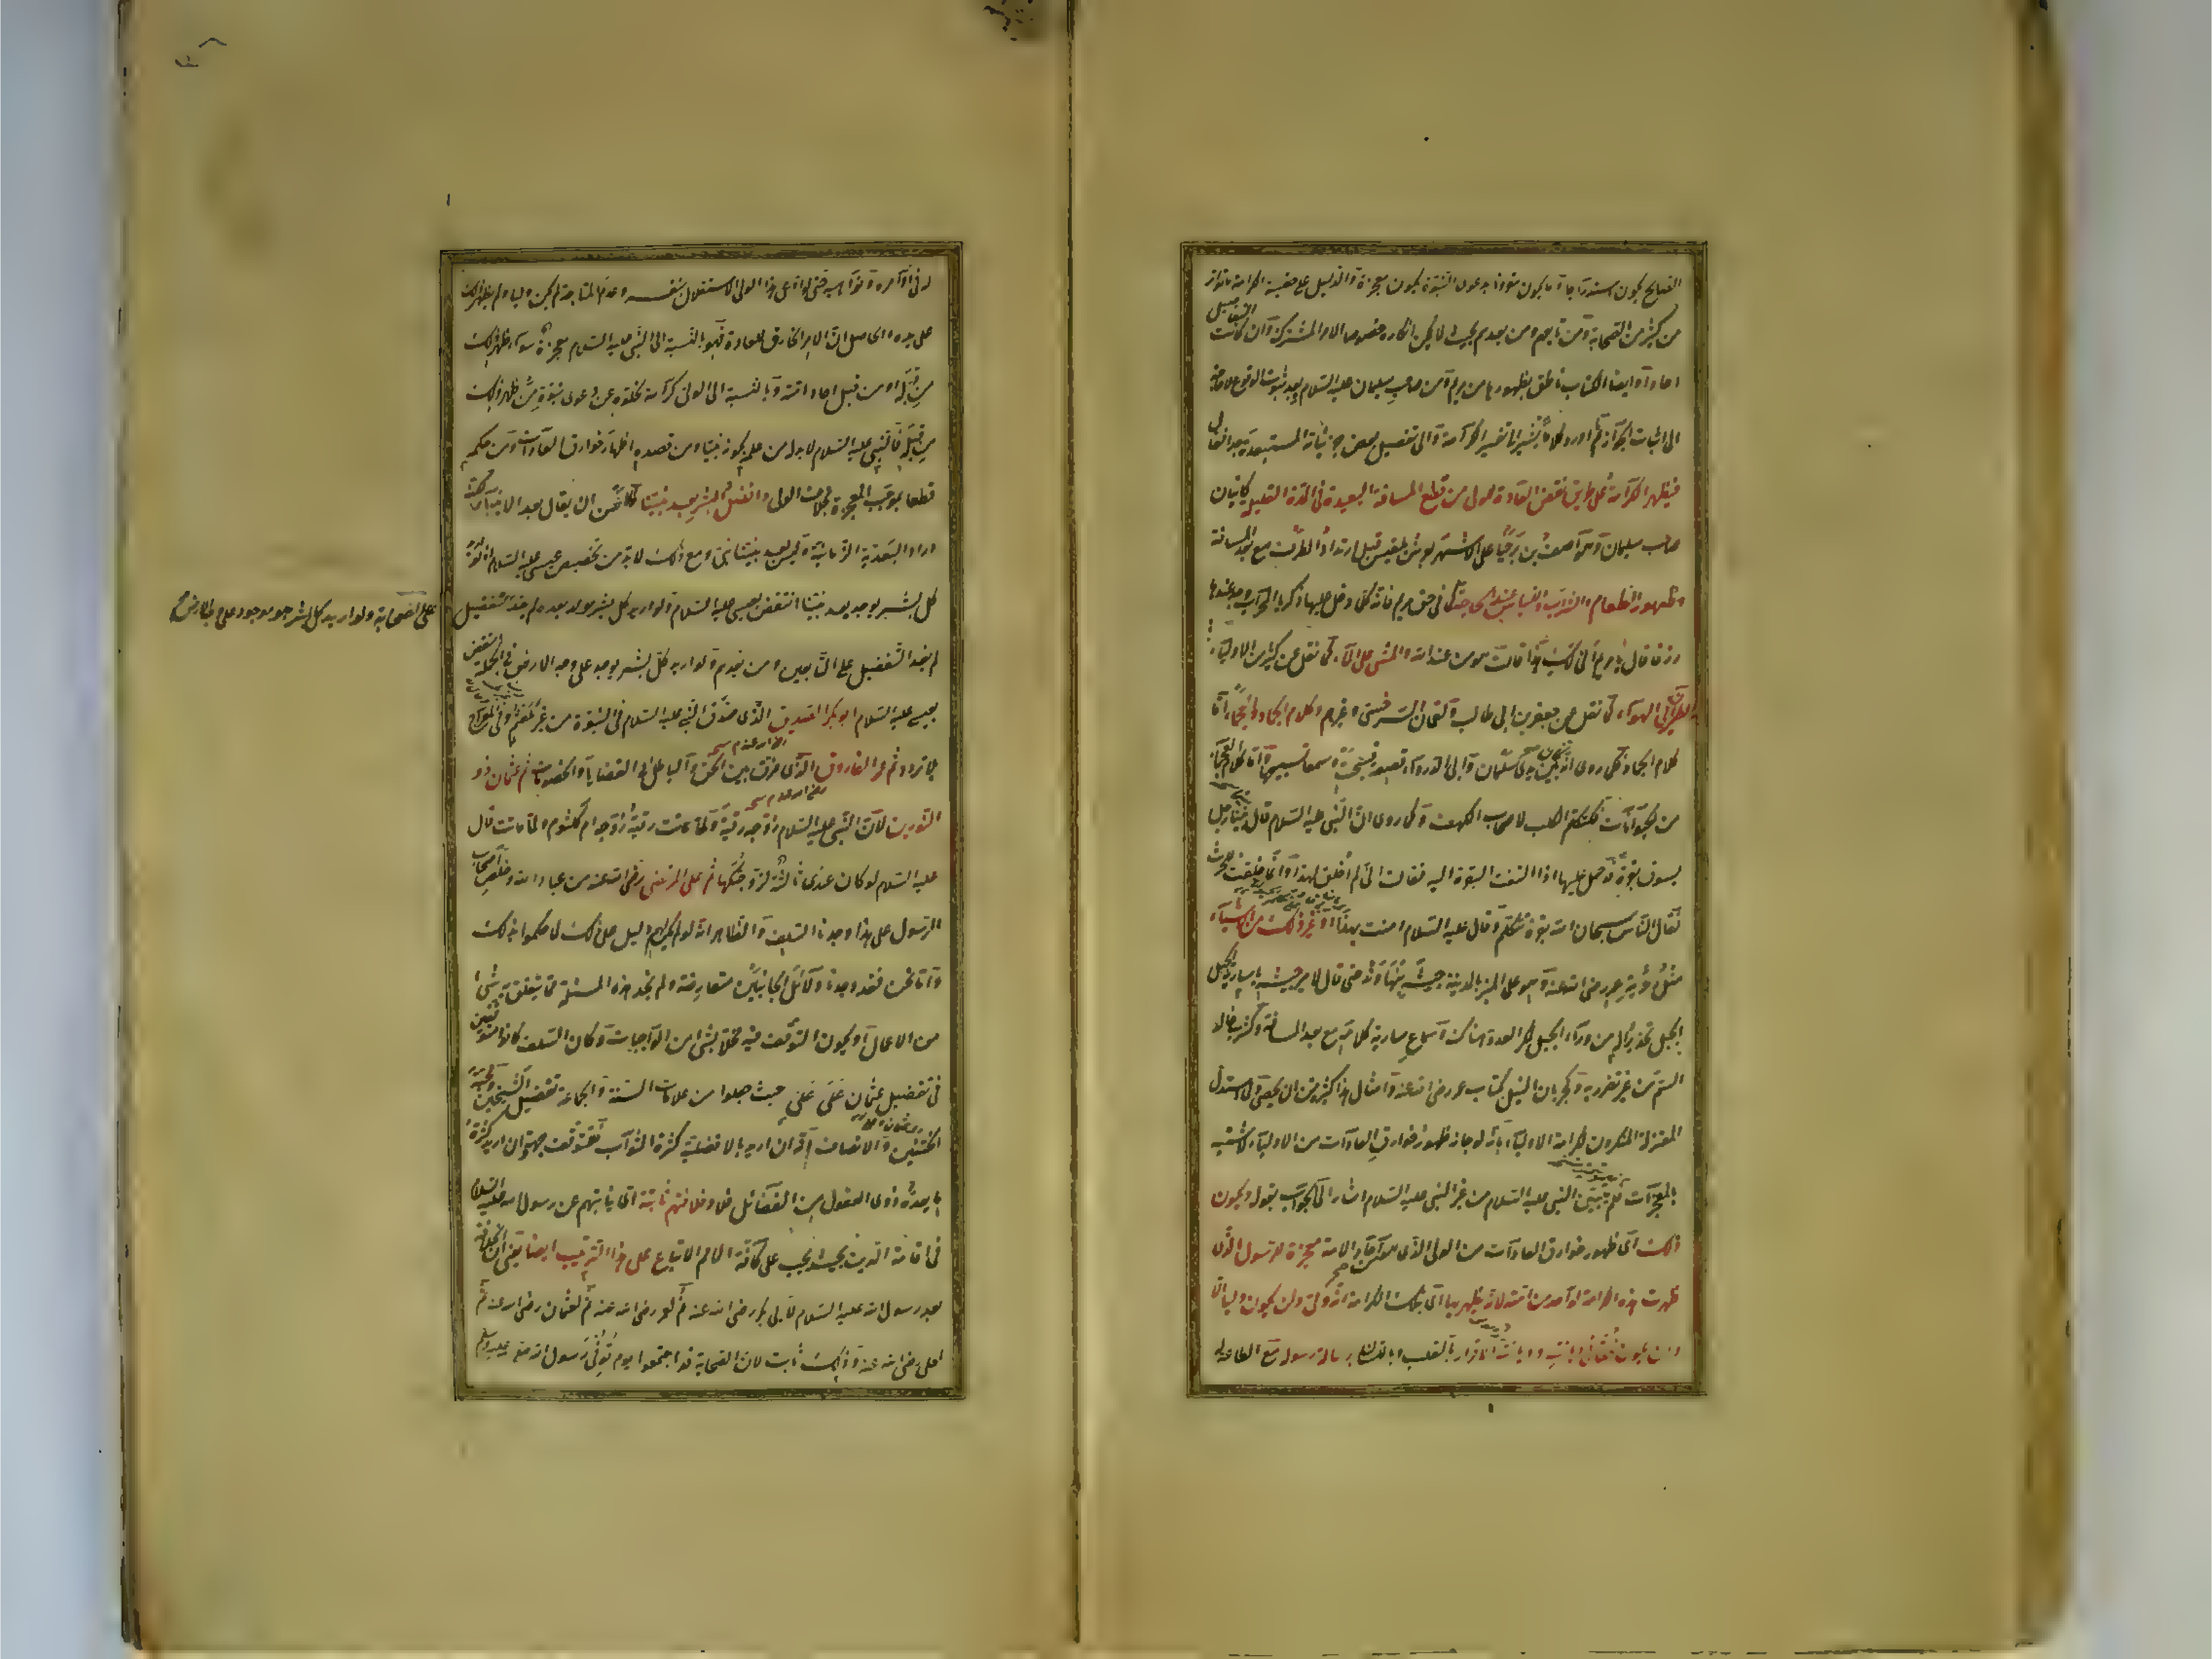 الصالح يكون استدراجا وما يكون مقرونا بدعوى النبوة يكون معجزة والدليل على حقية الكرامة ما تواتر
من كثير من الصحابة ومن تابعهم ومن بعدهم بحيث لا يمكن انكاره خصوصا الامر المشترك وان كانت التفاصيل
احادا وايضا الكتاب ناطق بظهورها من مريم ومن صاحب سليمان عليه السلام وبعد ثبوت الوقوع لا حاجة
الى اثبات الجواز ثم اورد كلاما يشير الى تفسير الكرامة والى تفصيل بعض جزئياته المستبعدة جدا فقال
فيظهر الكرامة على طريق نقض العادة للولى من قطع المسافة البعيدة فى المدة القليلة كاتيان
صاحب سليمان وهو آصف بن برخيا على الاشهر بعرش بلقيس قبل ارتداد الطرف مع بعد المسافة
وظهور الطعام والشراب واللباس عند الحاجة كما فى حق مريم فانه كلما دخل عليها زكريا المحراب وجد عندها
رزقا قال يا مريم انى لك هذا قالت هو من عند الله والمشى على الماء كما نقل عن كثير من الاولياء
والطيران فى الهواء كما نقل عن جعفر بن ابى طالب ولقمان السرخسى وغيرهم وكلام الجماد والعجماء اما
كلام الجماد فكما روى انه كان بين يدى سلمان وابى الدرداء قصعة فسبحت وسمعا تسبيحها واما كلام العجماء
من الحيوانات فكتكلم الكلب لاصحاب الكهف وكما روى ان النبى عليه السلام قال بينا رجل
يسوق بقرة قد حمل عليها اذا التفتت البقرة اليه فقالت انى لم اخلق لهذا وانما خلقت للحرث
فقال الناس سبحان الله بقرة تتكلم وقال عليه السلام امنت بهذا او غير ذلك من الاشياء
مثل رؤية عمر رضى الله عنه وهو على المنبر بالمدينة جيشه بنهاوند حتى قال لامير جيشه يا سارية الجبل
الجبل تحذيرا له من وراء الجبل لمكر العدو هناك وسماع سارية كلامه مع بعد المسافة وكشرب خالد
السم من غير تضرر به وكجريان النيل بكتاب عمر رضى الله عنه وامثال هذا اكثر من ان يحصى ولما استدل
المعتزلة المنكرون لكرامة الاولياء بانه لو جاز ظهور خوارق العادات من الاولياء لاشتبه
بالمعجزات فلم يتميز النبى عليه السلام من غير النبى عليه السلام اشار الى الجواب بقوله ويكون
ذلك اى ظهور خوارق العادات من الولى الذى هو من آحاد الامة معجزة للرسول الذى
ظهرت هذه الكرامة لواحد من امته لانه يظهر بها اى بتلك الكرامة انه ولى ولن يكون وليا الا
وان يكون محقا فى ديانته وديانته الاقرار بالقلب وباللسان برسالة رسوله مع الطاعة
له فى اوامره ونواهيه حتى لو ادعى هذا الولى الاستقلال بنفسه وعدم المتابعة لم يكن وليا ولم يظهر ذلك
على يده والحاصل ان الامر الخارق للعادة فهو بالنسبة الى النبى عليه السلام معجزة سواء ظهر ذلك
من قبله او من قبل احاد امته وبالنسبة الى الولى كرامة لخلوه عن دعوى نبوة من ظهر ذلك
من قبله فالنبى عليه السلام لا بد من علمه بكونه نبيا ومن قصده اظهار خوارق العادات ومن حكمه
قطعا بموجب المعجزة بخلاف الولى وافضل البشر بعد نبينا والاحسن ان يقال بعد الانبياء لكنه
اراد البعدية الزمانية وليس بعد نبينا نبى ومع ذلك لا بد من تخصيص عيسى عليه السلام اذ لو اريد
كل بشر يوجد بعد نبينا انتقض بعيسى عليه السلام ولو اريد كل بشر يولد بعده لم يفد التفضيل
على الصحابة ولو اريد كل بشر هو موجود على وجه الارض
لم يفد التفضيل على التابعين ومن بعدهم ولو اريد كل بشر يوجد على وجه الارض فى الجملة انتقض
بعيسى عليه السلام ابو بكر الصديق الذى صدق النبى عليه السلام فى النبوة من غير تلعثم وفى المعراج
بلا تردد ثم عمر الفاروق الذى فرق بين الحق والباطل فى القضايا والخصومات ثم عثمان ذو
النورين لان النبى عليه السلام زوجه رقية ولما ماتت رقية زوجه ام كلثوم ولما ماتت قال
عليه السلام لو كان عندى ثالثة لزوجتكها ثم على المرتضى رضى الله عنه من عباد الله وخلص اصحاب
الرسول على هذا وجدنا السلف والظاهر انه لو لم يكن لهم دليل على ذلك لما حكموا بذلك
واما نحن فقد وجدنا دلائل الجانبين متعارضة ولم نجد هذه المسئلة مما يتعلق به شئ
من الاعمال او يكون التوقف فيه مخلا بشئ من الواجبات وكان السلف كانوا متوقفين
فى تفضيل عثمان على على حيث جعلوا من علامات السنة والجماعة تفضيل الشيخين ومحبة
الختنين والانصاف انه ان اريد بالافضلية كثرة الثواب فللتوقف جهة وان اريد كثرة
ما يعده ذوى العقول من الفضائل فلا وخلافتهم ثابتة اى نيابتهم عن رسول الله عليه السلام
فى اقامة الدين بحيث يجب على كافة الامم الاتباع على هذا الترتيب ايضا يعنى ان الخلافة
بعد رسول الله عليه السلام لابى بكر رضى الله عنه ثم لعمر رضى الله عنه ثم لعثمان رضى الله عنه ثم
لعلى رضى الله عنه وذلك ثابت لان الصحابة قد اجتمعوا يوم توفى رسول الله صلى عليه وسلم